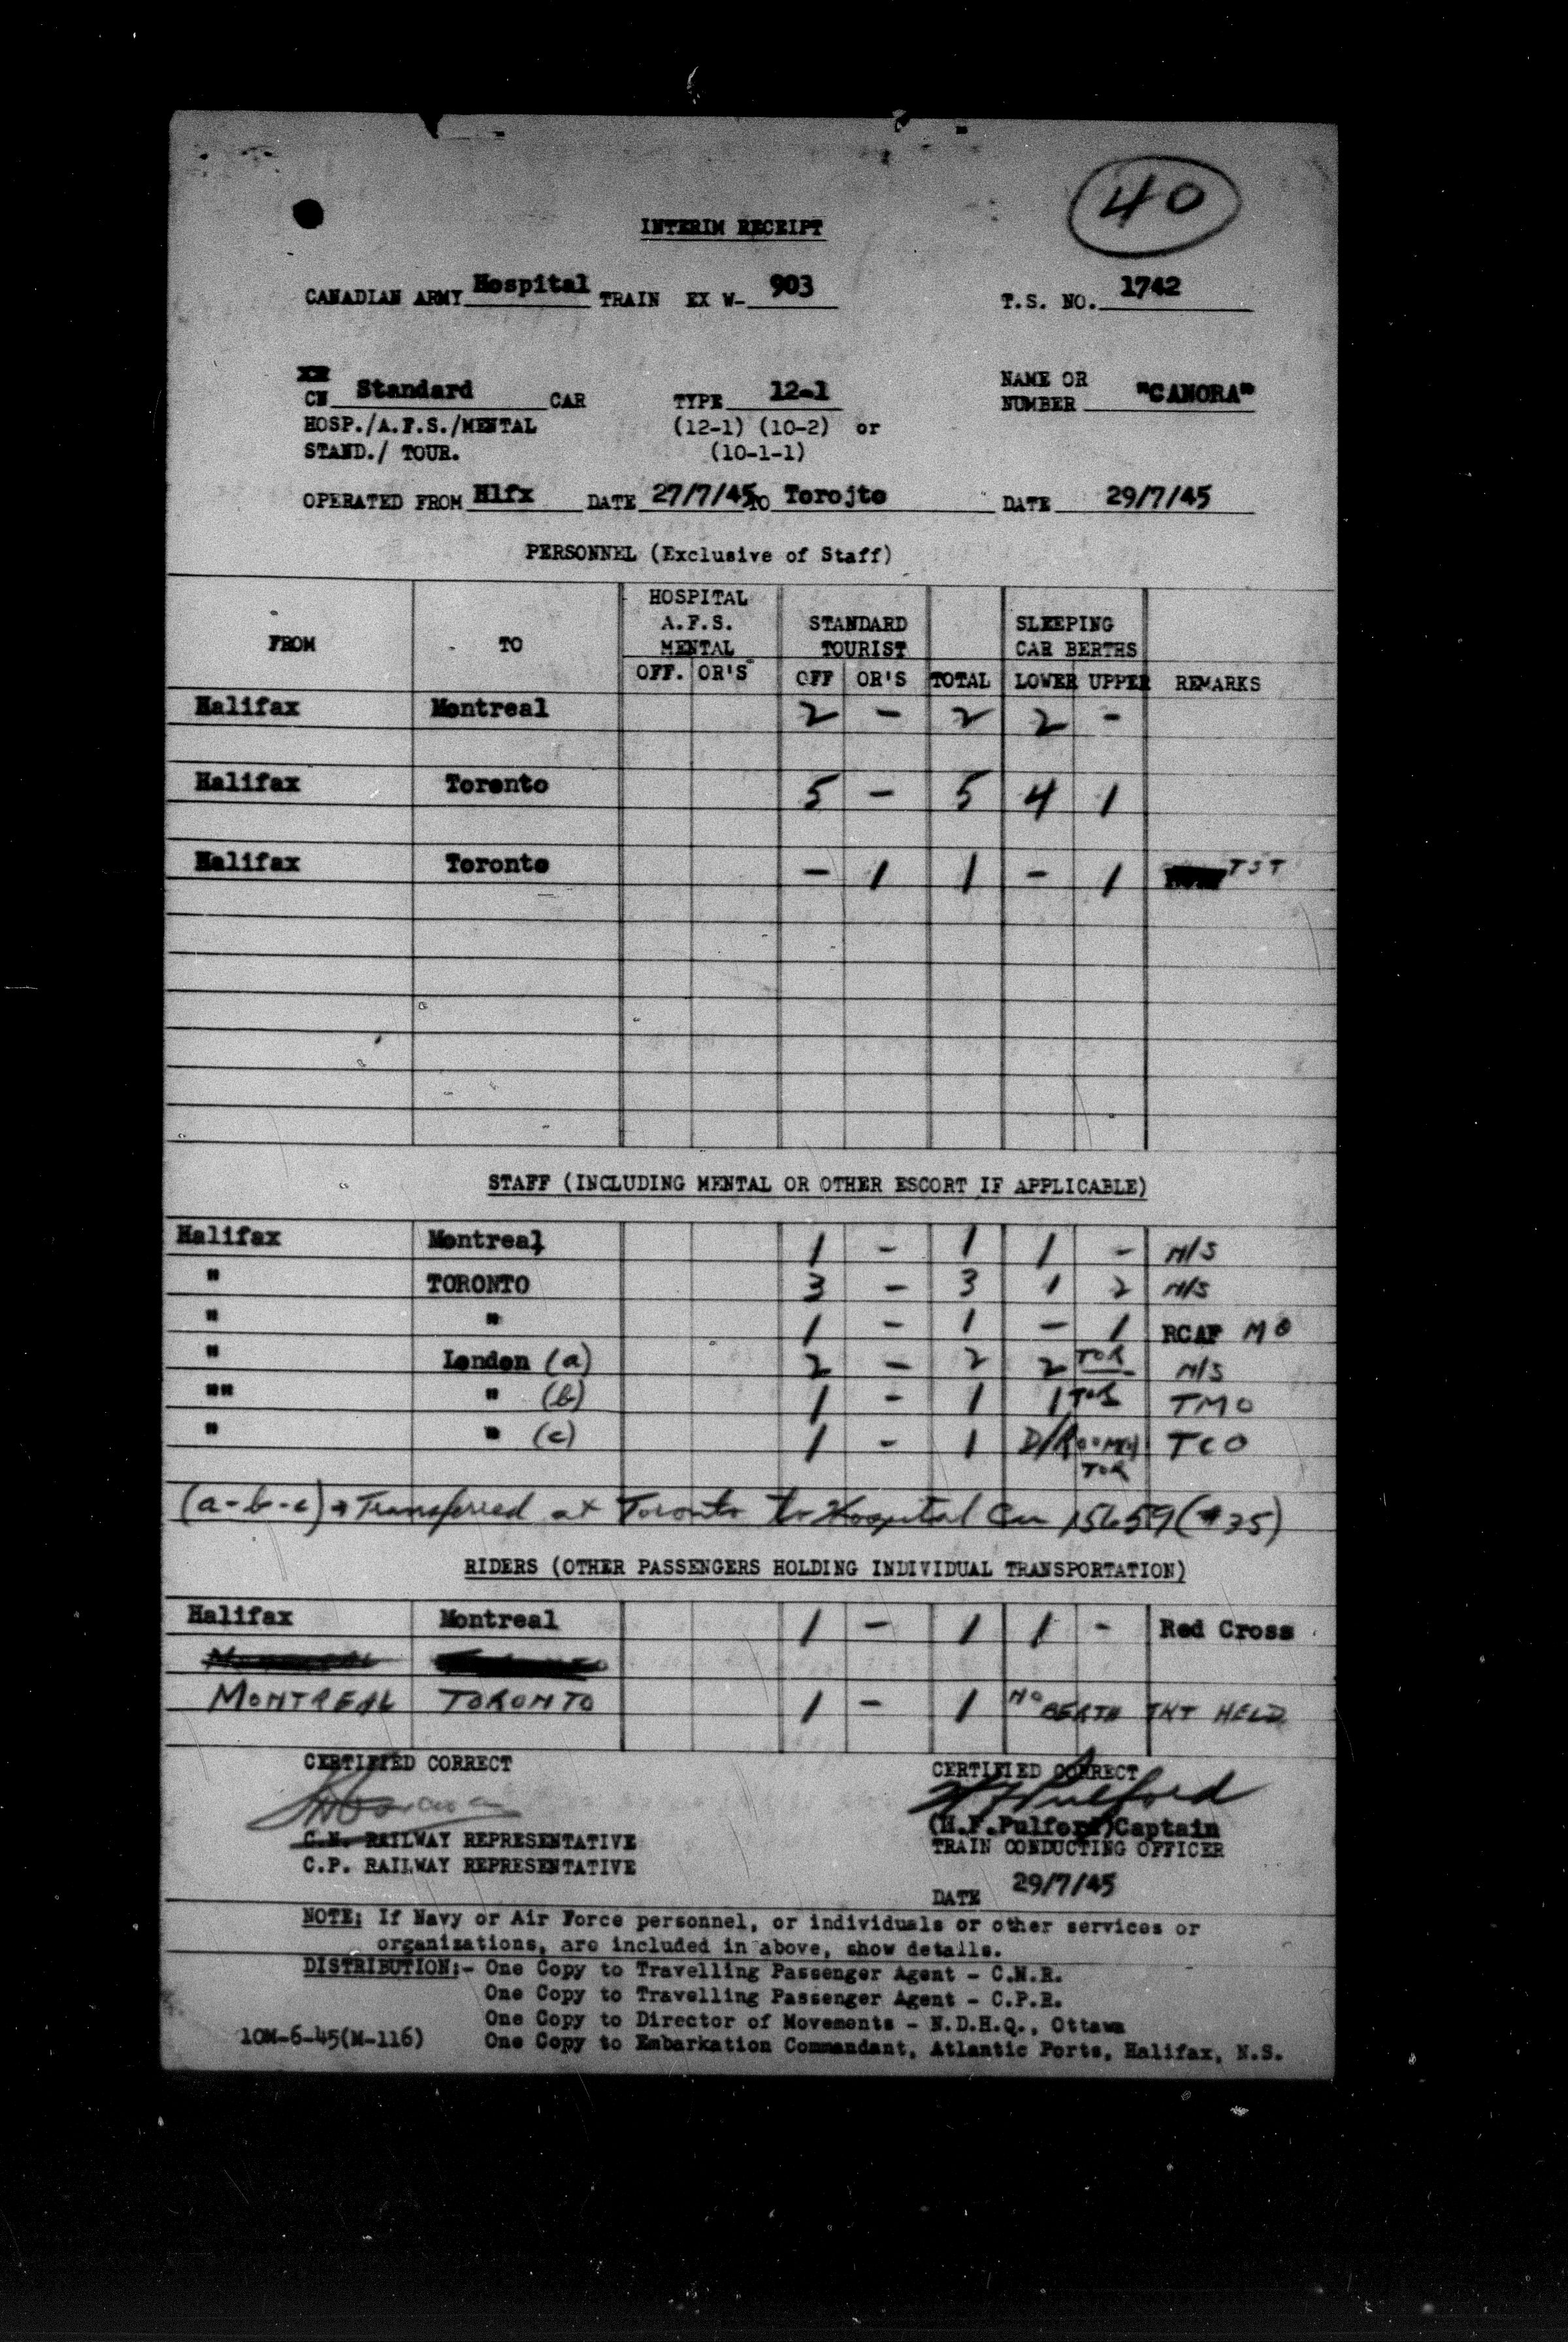 40
INTERIM RECEIPT
CANADIAN ARMY Hospital TRAIN EX W- 903 T.S. NO. 1742
CN Standard CAR TYPE 12-1 NAME OR NUMBER "CANORA"
HOSP./A.F.S./MENTAL (12-1) (10-2) or
STAND./ TOUR. (10-1-1)
OPERATED FROM Hlfx DATE 27/7/45 TO Torojto DATE 29/7/45
PERSONNEL (Exclusive of Staff)
FROM TO HOSPITAL A.F.S. MENTAL STANDARD TOURIST SLEEPING CAR BERTHS
OFF. OR'S OFF OR'S TOTAL LOWER UPPER REMARKS
Halifax Montreal 2 - 2 2 -
Halifax Toronto 5 - 5 4 1
Halifax Toronto - 1 1 - 1 TST
STAFF (INCLUDING MENTAL OR OTHER ESCORT IF APPLICABLE)
Halifax Montreal 1 - 1 1 - N/S
" TORONTO 3 - 3 1 2 N/S
" " 1 - 1 - 1 RCAF MO
" London (a) 2 - 2 2 TOR N/S
"" " (b) 1 - 1 1 TOR TMO
" " (c) 1 - 1 D/ROOM TOR TCO
(a-b-c) Transferred at Toronto to Hospital Car 15659 (#35)
RIDERS (OTHER PASSENGERS HOLDING INDIVIDUAL TRANSPORTATION)
Halifax Montreal 1 - 1 1 - Red Cross
MONTREAL TORONTO 1 - 1 NO BERTH TKT HELD
CERTIFIED CORRECT CERTIFIED CORRECT
H F Pulford
(H.F.Pulford)Captain
C.N. RAILWAY REPRESENTATIVE TRAIN CONDUCTING OFFICER
C.P. RAILWAY REPRESENTATIVE
DATE 29/7/45
NOTE: If Navy or Air Force personnel, or individuals or other services or
organizations, are included in above, show details.
DISTRIBUTION:- One Copy to Travelling Passenger Agent - C.N.R.
One Copy to Travelling Passenger Agent - C.P.R.
One Copy to Director of Movements - N.D.H.Q., Ottawa
10M-6-45(M-116) One Copy to Embarkation Commandant, Atlantic Ports, Halifax, N.S.